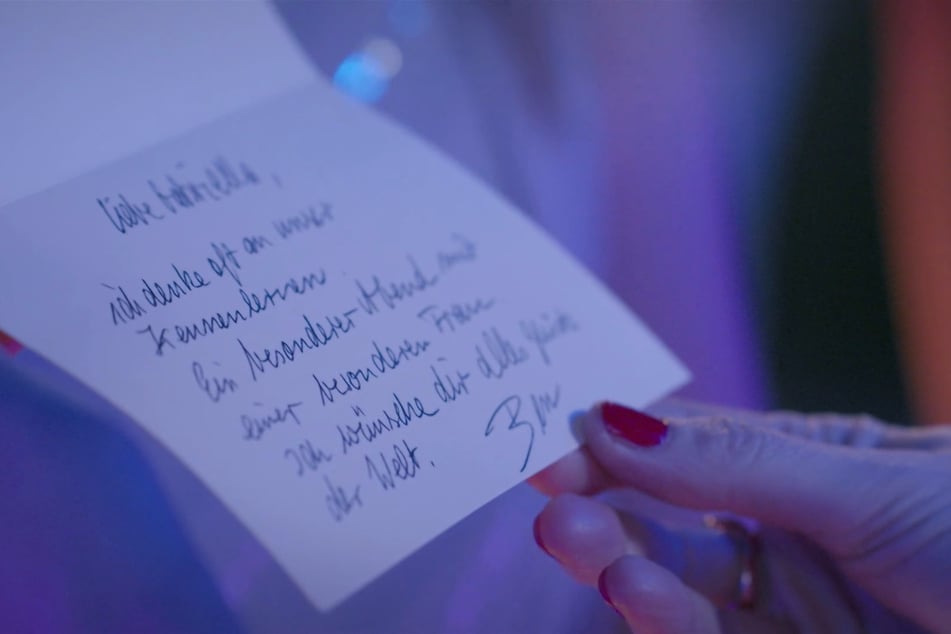 Liebe
ich denke oft an unser
Kennenlernen
Ein besonderer Abend mit
einer besonderen Frau
Ich wünsche dir alles Glück
der Welt.